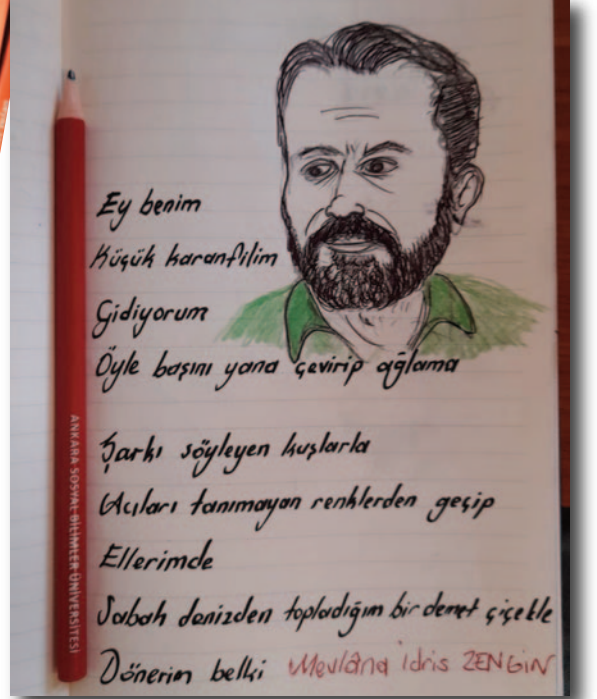 Ey benim
Küçük karanfilim
Gidiyorum
Öyle başını yana çevirip ağlama
Şarkı söyleyen kuşlarla
Acıları tanımayan renklerden geçip
Ellerimde
Sabah denizden topladığım bir demet çiçekle
Dönerim belki Mevlâna İdris ZENGİN
ANKARA SOSYAL BİLİMLER ÜNİVERSİTESİ